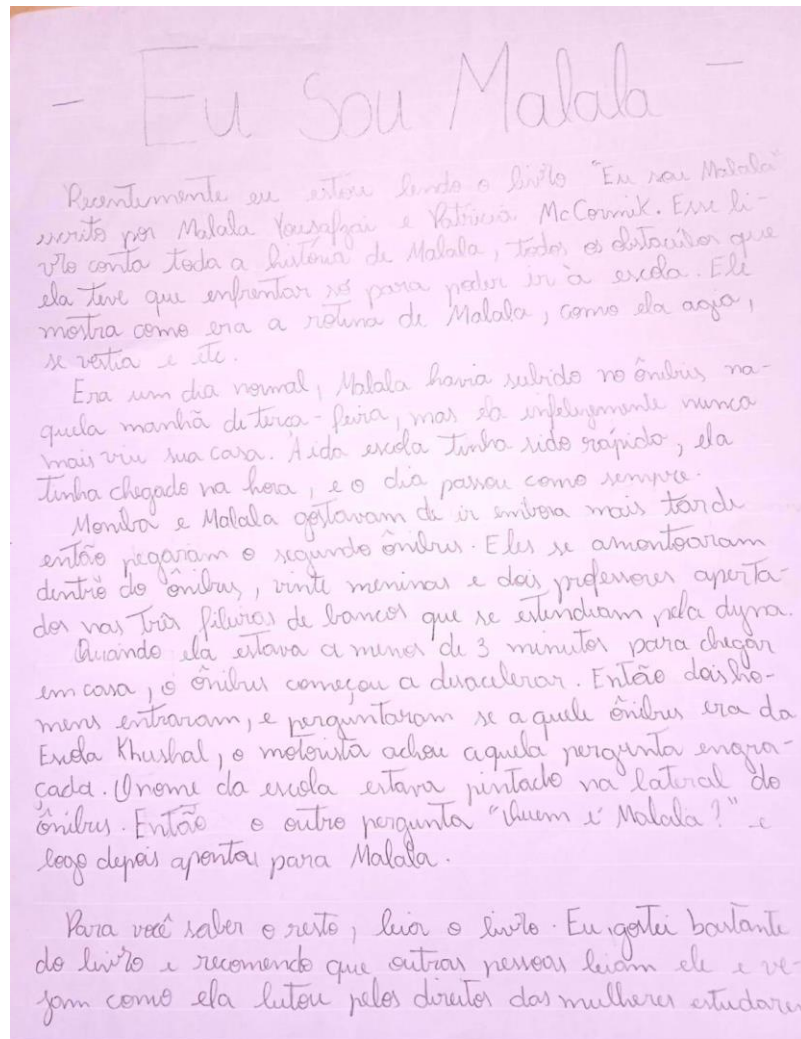 - Eu Sou Malala -
Recentemente eu estou lendo o livro "Eu sou Malala"
escrito por Malala Yousafzai e Patricia McCormik. Esse li-
vro conta toda a história de Malala, todos os obstaculos que
ela teve que enfrentar só para poder ir à escola. Ele
mostra como era a rotina de Malala, como ela agia,
se vestia e etc.
Era um dia normal, Malala havia subido no ônibus na-
quela manhã de terça-feira, mas ela infelizmente nunca
mais viu sua casa. A ida escola tinha sido rápido, ela
tinha chegado na hora, e o dia passou como sempre.
Moniba e Malala gostavam de ir embora mais tarde
então pegaram o segundo ônibus. Eles se amontoaram
dentro do ônibus, vinte meninas e dois professores aperta-
dos nas três fileiras de bancos que se estendiam pela dyna.
Quando ela estava a menos de 3 minutos para chegar
em casa, o ônibus começou a desacelerar. Então dois ho-
mens entraram, e perguntaram se aquele ônibus era da
Escola Khushal, o motorista achou aquela pergunta engra-
çada. O nome da escola estava pintado na lateral do
ônibus. Então o outro pergunta "Quem é Malala?" e
logo depois apontou para Malala.
Para você saber o resto, leia o livro. Eu gostei bastante
do livro e recomendo que outras pessoas leiam ele e ve-
jam como ela lutou pelos direitos das mulheres estudarem